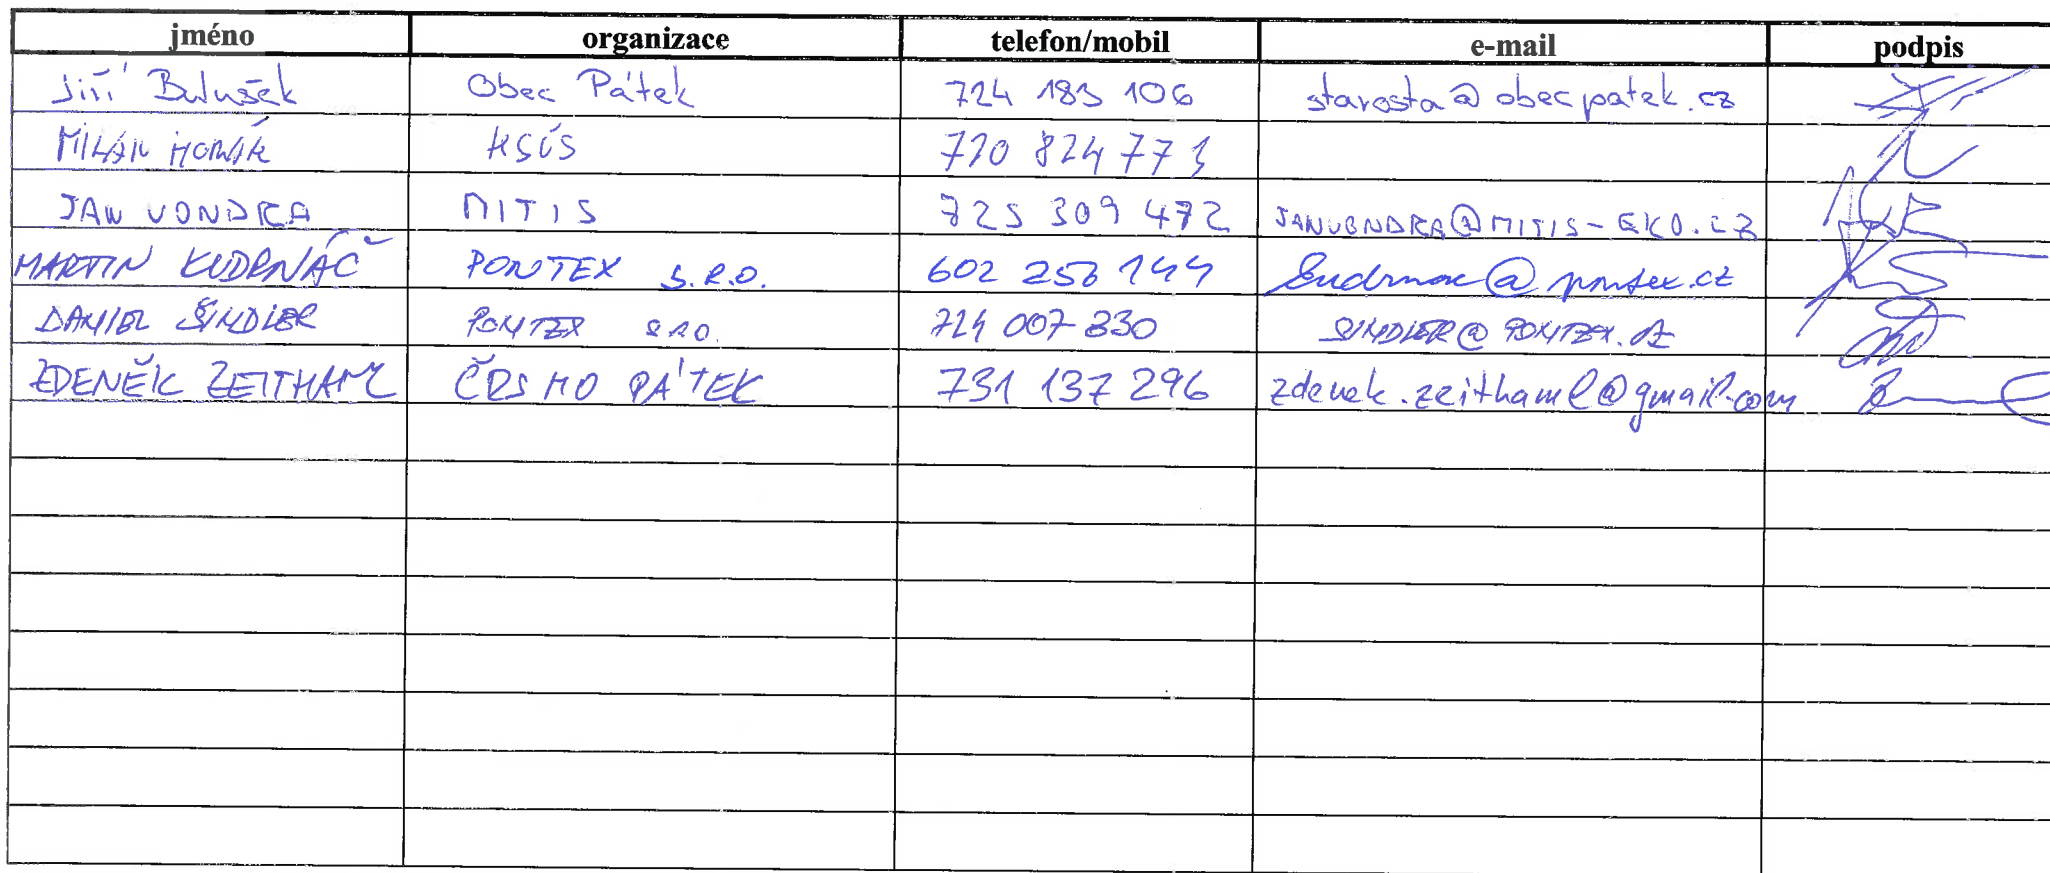 jméno organizace telefon/mobil e-mail podpis
Jiří Obec Pátek 724 183 106 starosta@obecpatek.cz
MILAN HORNÍK KSÚS 720 824 773
JAN VONDRA MITIS 725 309 472 JANVONDRA@MITIS-EKO.CZ
MARTIN KUDRNÁČ PONTEX S.R.O. 602 258 144 kudrnac@pontex.cz
DANIEL ŠINDLER PONTEX s.r.o. 724 007 830 SINDLER@PONTEX.CZ
ZDENĚK ZEITHAML ČRS MO PÁTEK 731 137 296 zdenek.zeithaml@gmail.com